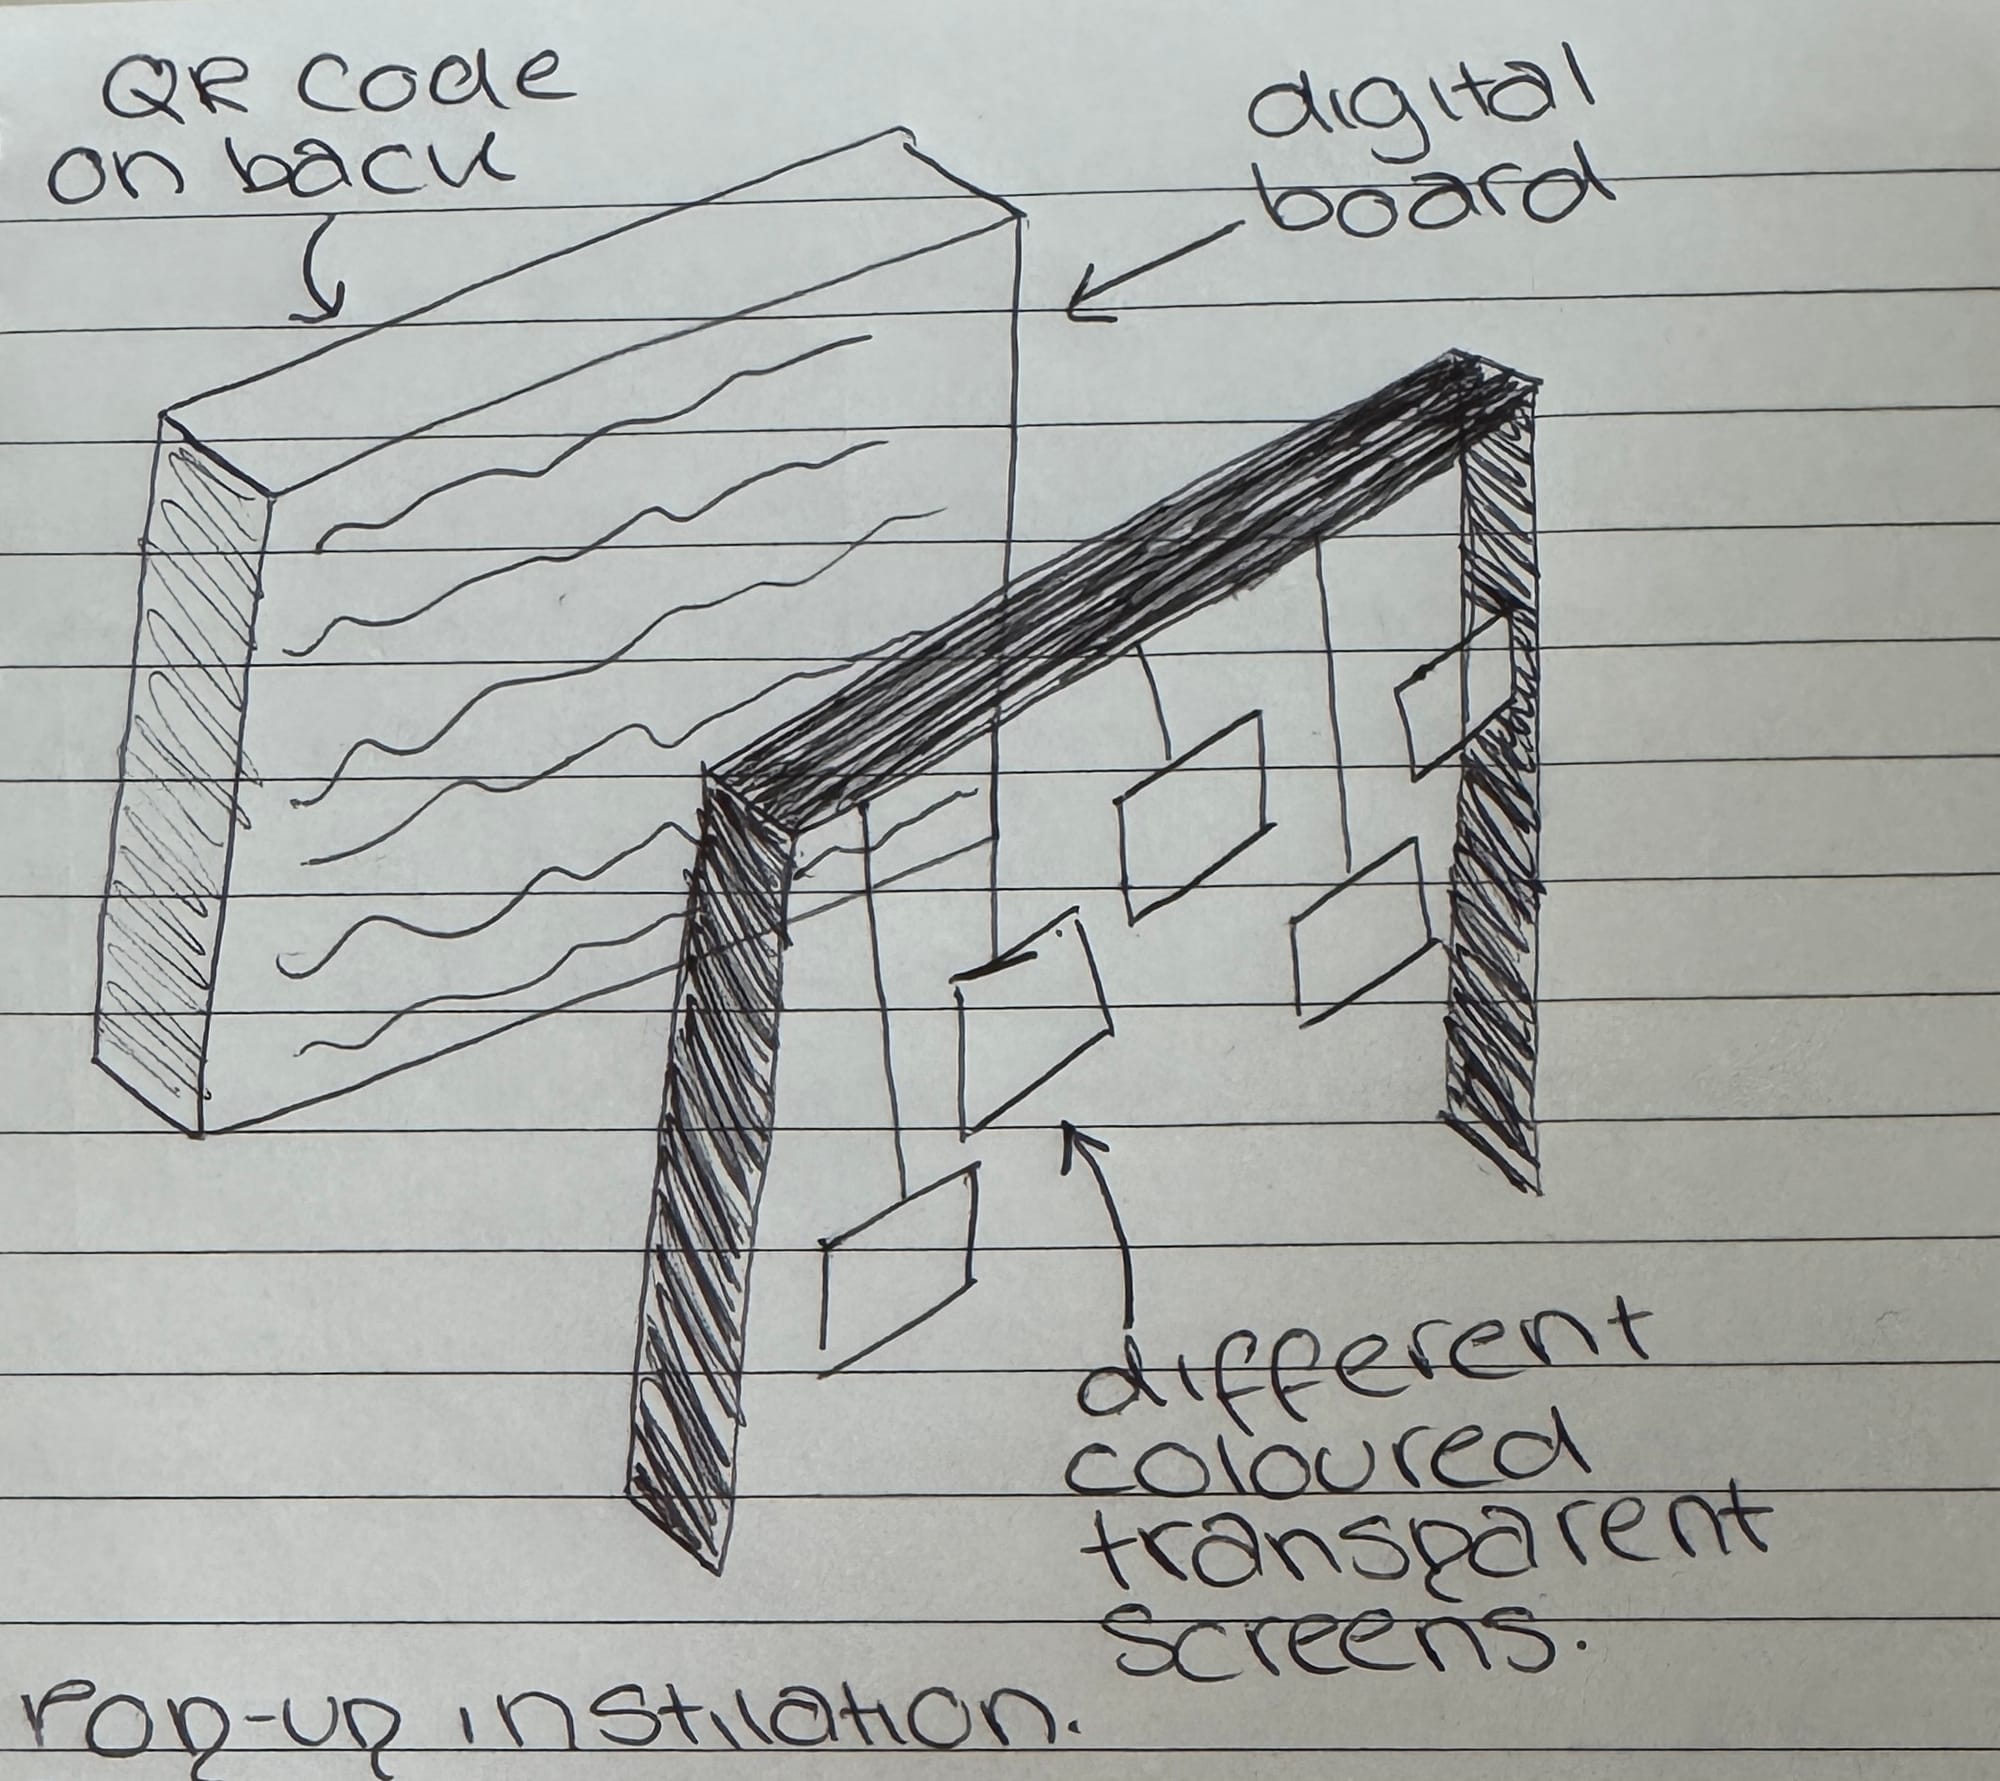 QR code
on back
digital
board
different
coloured
transparent
screens.
Pop-up instilation.